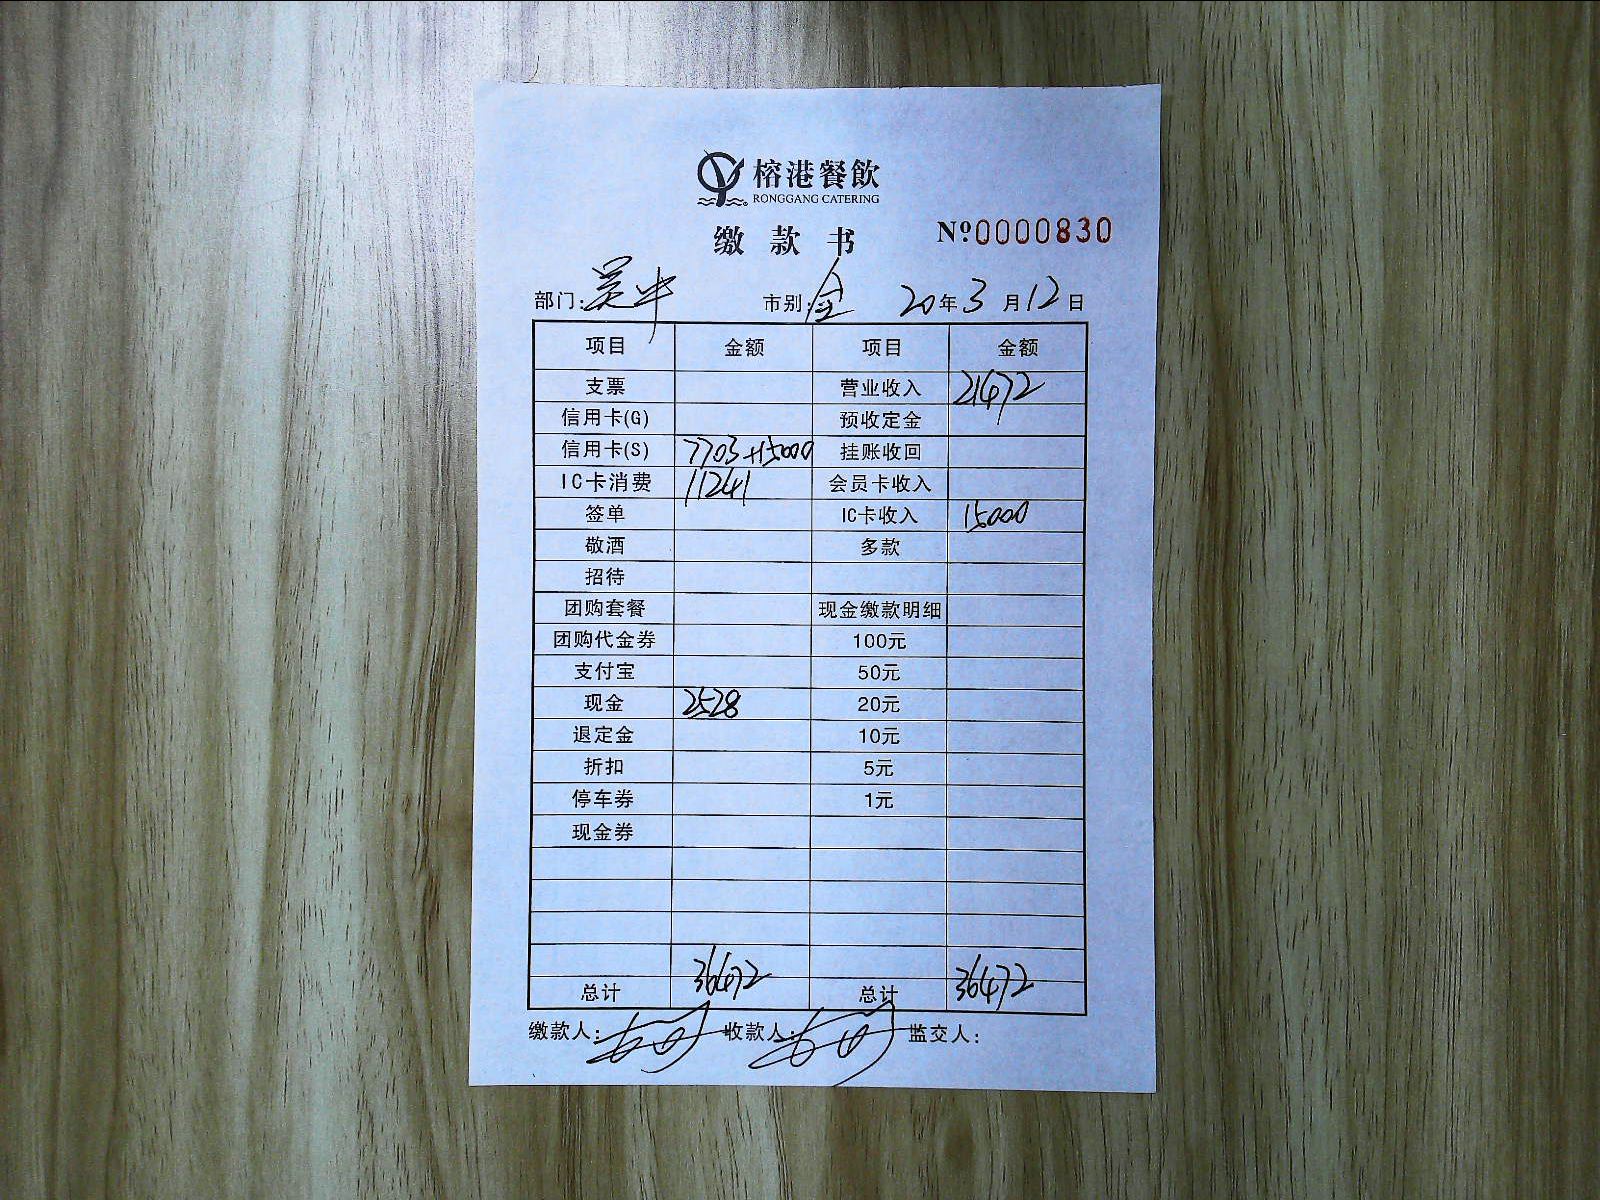 榕港餐飲
RONGGANG CATERING
缴款书 №0000830
部门:吴中 市别:全 20年3月12日
项目 金额 项目 金额
支票 营业收入 21472
信用卡(G) 预收定金
信用卡(S) 7703+15000 挂账收回
IC卡消费 11241 会员卡收入
签单 IC卡收入 15000
敬酒 多款
招待
团购套餐 现金缴款明细
团购代金券 100元
支付宝 50元
现金 2528 20元
退定金 10元
折扣 5元
停车券 1元
现金券
总计 36472 总计 36472
缴款人: 收款人: 监交人: